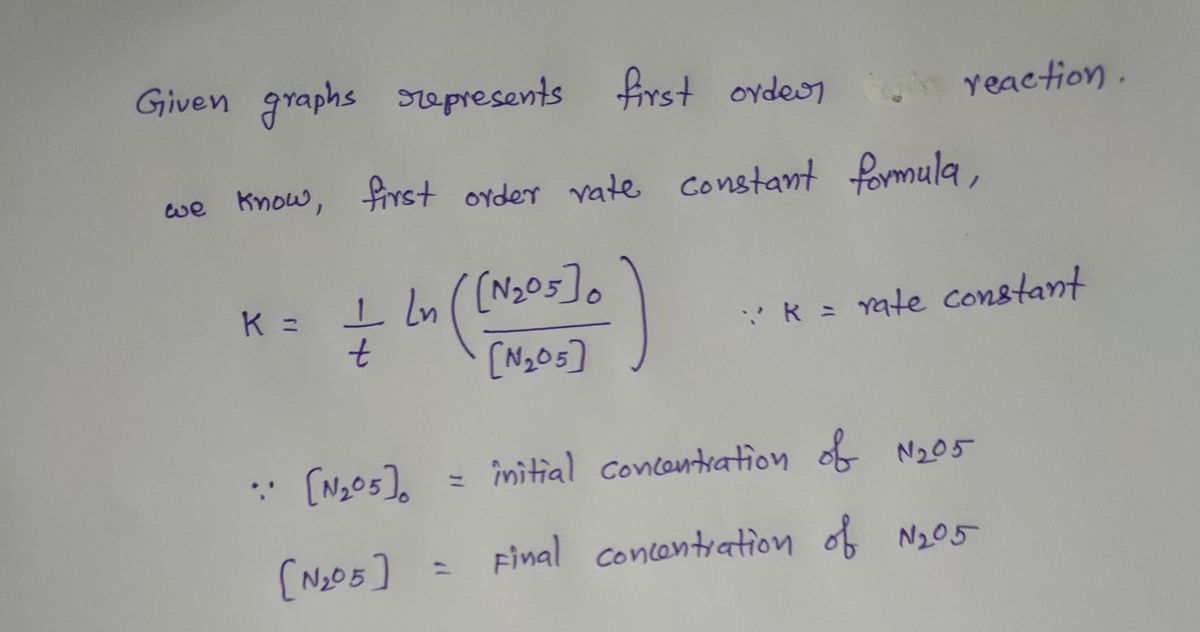 Given graphs represents first order reaction.
we know, first order rate constant formula,
K = 1/t ln([N2O5]0/[N2O5]) ∵ K = rate constant
∵ [N2O5]0 = initial concentration of N2O5
[N2O5] = Final concentration of N2O5